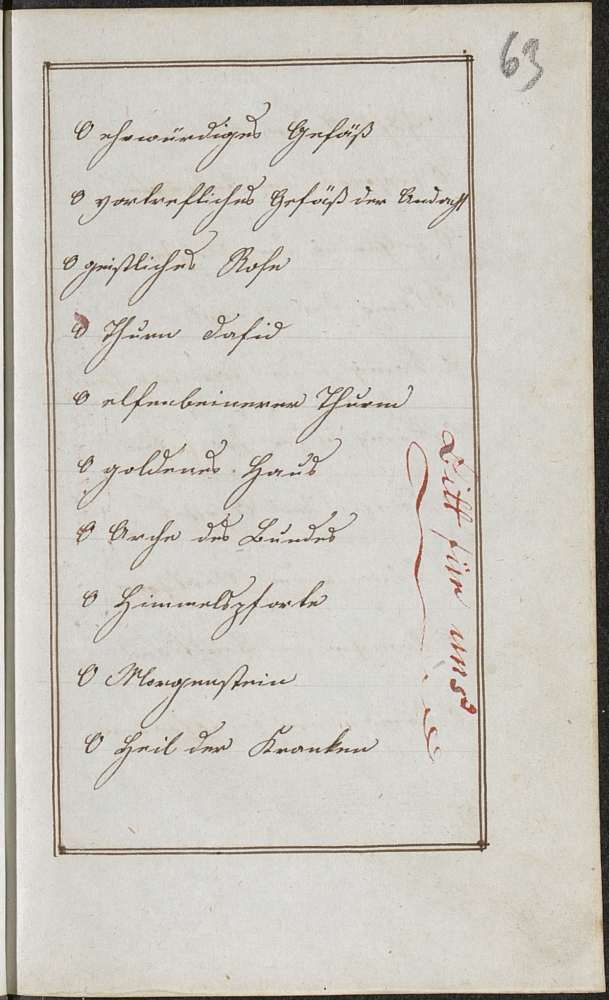 63
O ehrwürdiges Gefäß
O vortrefliches Gefäß der Andacht
O geistliches Rose
O Thurn Dafid
O elfenbeinerner Thurm
O goldenes Haus
O Arche des Bundes
O Himmelspforte
O Morgenstein
O Heil der Kranken
Bitt für uns